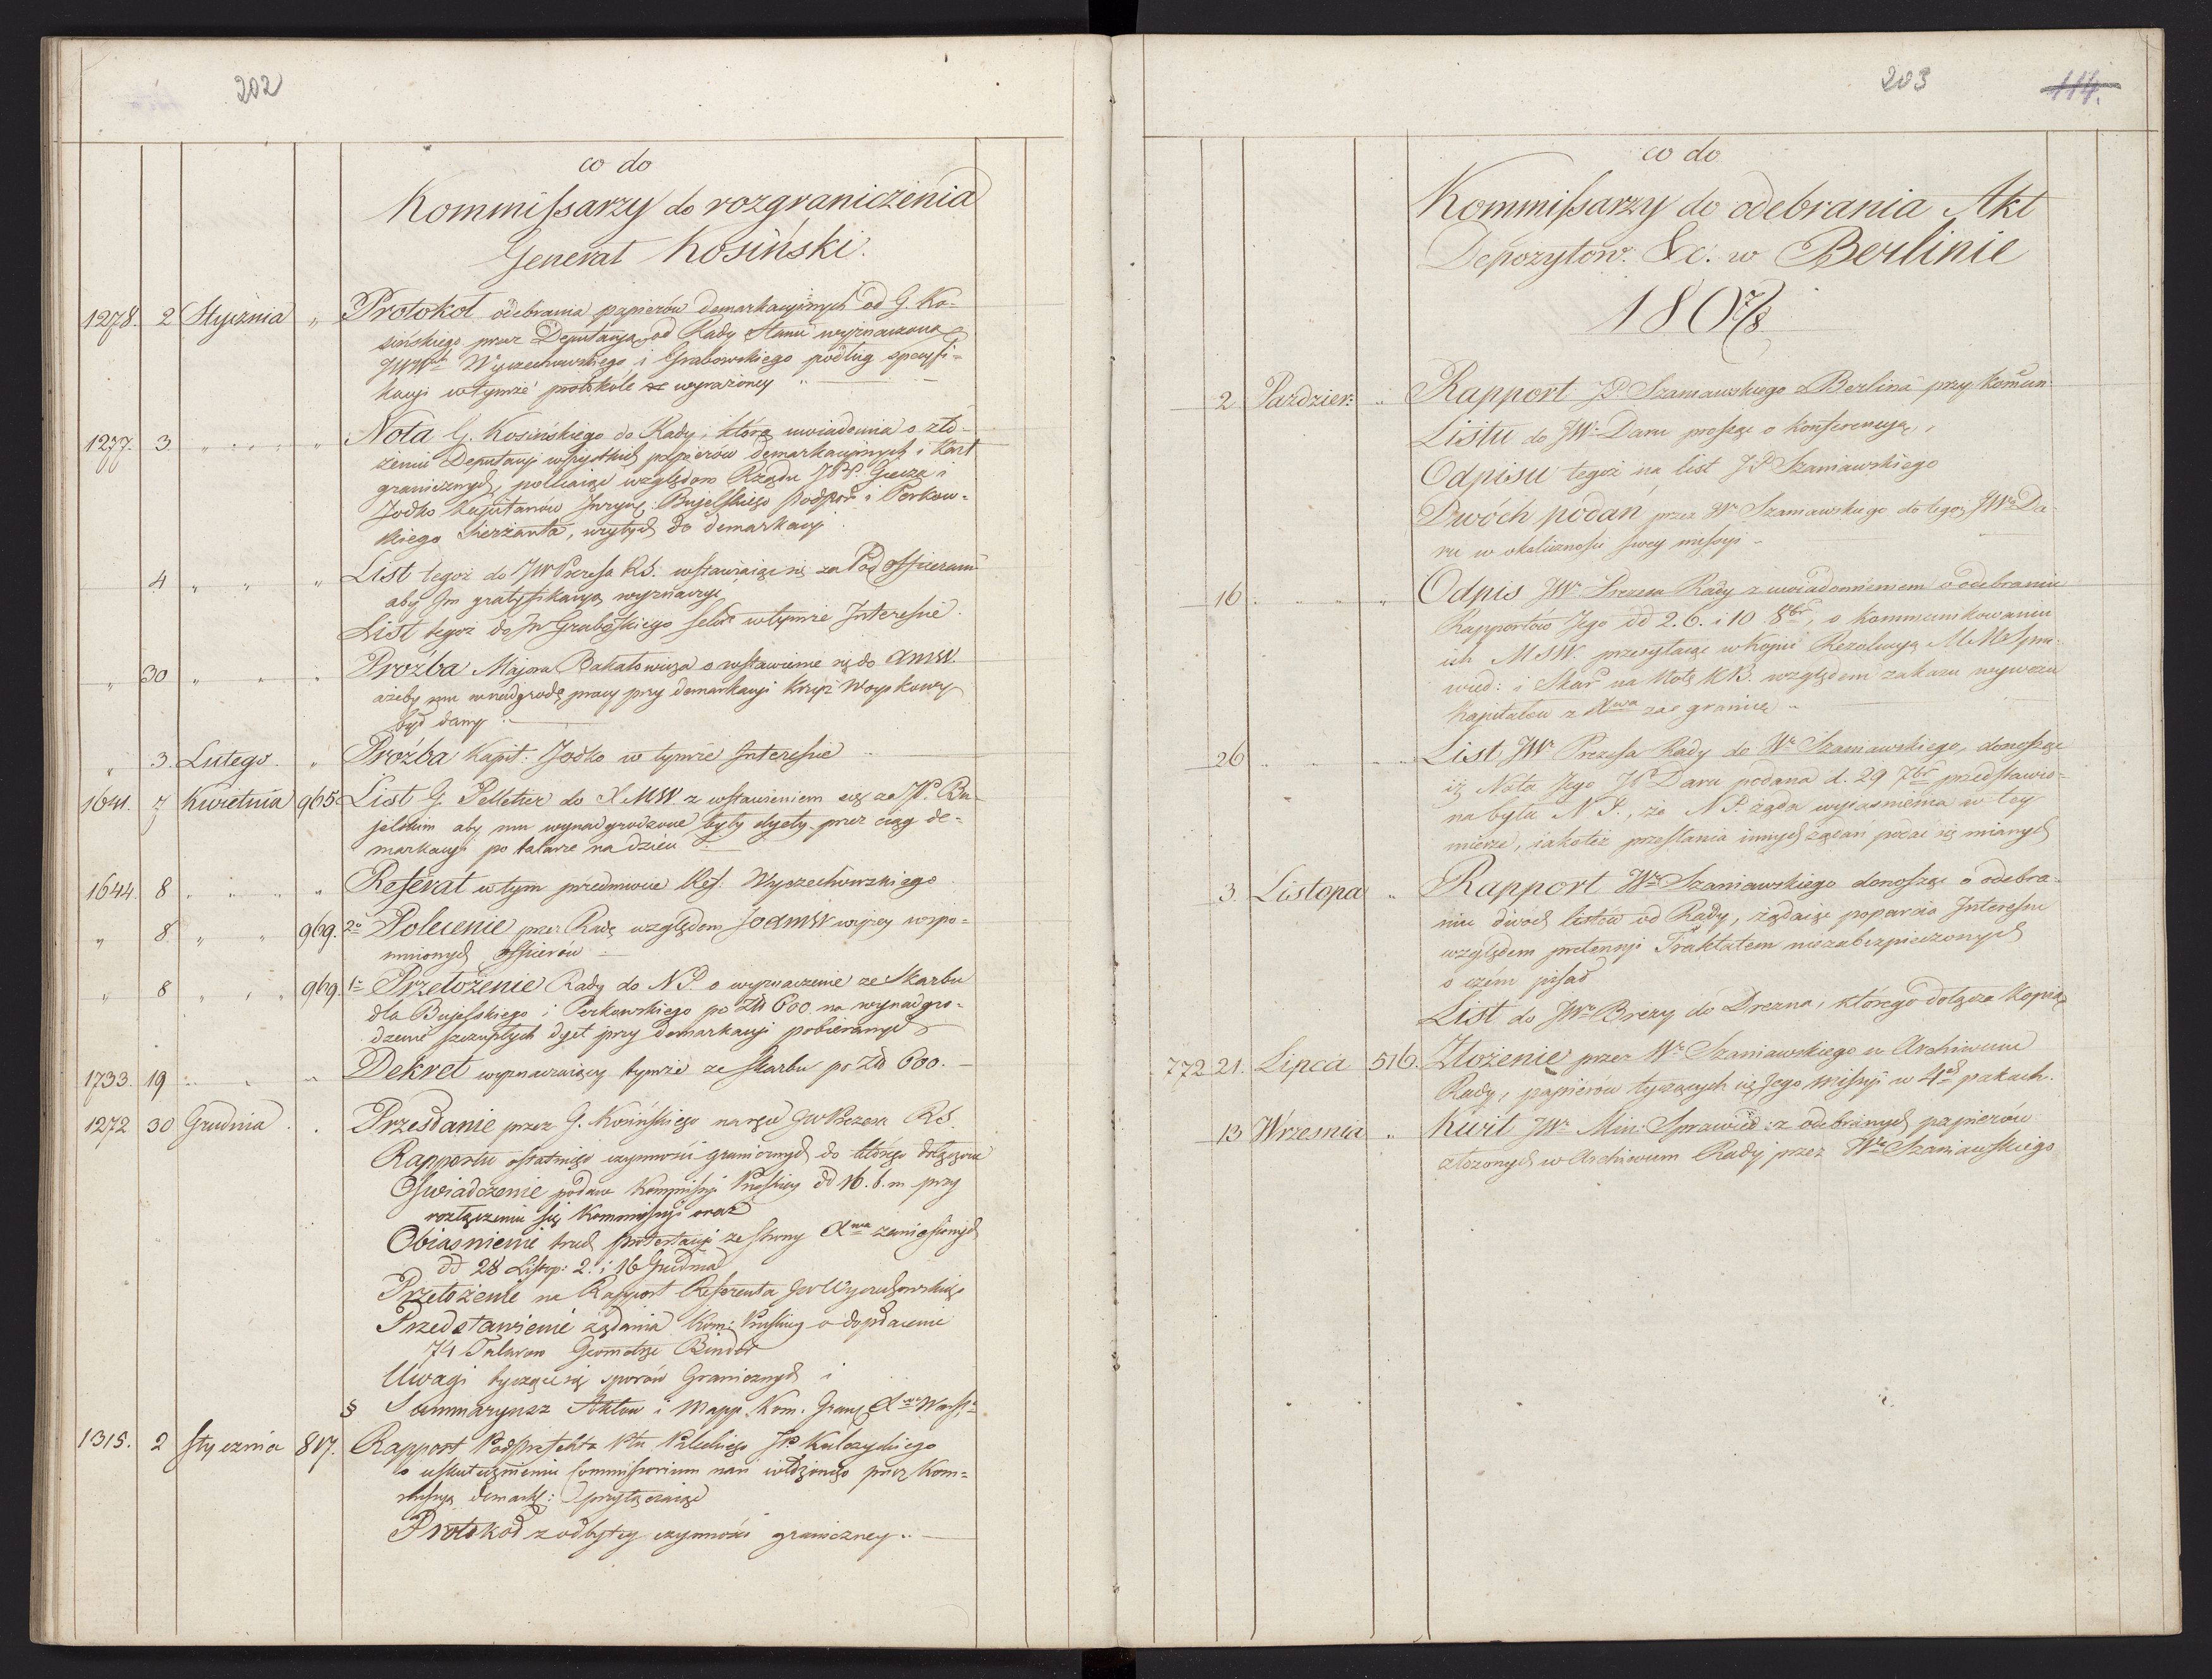 202
co do
Kommissarzy do rozgraniczenia
Generał Kosiński.
1278. 2 Stycznia " Protokoł odebrania papierów demarkacyinych od G. Ko-
sińskiego przez Deputacyą od Rady Stanu wyznaczoną
JWW Wyczechowskiego i Grabowskiego podług specyfi-
kacyi w tymże protokole wyrażoney "
1277. 3 " " " Nota G. Kosińskiego do Rady, którą uwiadomia o zło-
żeniu Deputacyi wszystkich papierów demarkacyinych i Kart
granicznych, polecaiąc względom Rządu JPP. Giecza i
Jodko Kapitanów Inzyn: Bujelskiego Podpor: i Perkow-
skiego Sierżanta, użytych do demarkacyi
4 " " " List tegoż do JW Prezesa RS. wstawiaiąc się za Pod officerami
aby Im gratyfikacyą wyznaczyć
List tegoż do JW Grabowskiego w tymże Interesie.
" 30 " " " Proźba Majora Bakałowicza o wstawienie się do
ażeby mu w nadgrodę pracy przy demarkacyi Krzyż Woyskowy
był dany
" 3. Lutego. " Proźba Kapit: Jodko w tymże Interesie
1641. 7 Kwietnia 965. List G. Pelletier do XMW z wstawieniem się za JP. Bu-
jelskim aby mu wynadgrodzone były dyety przez ciąg de-
markacyi po talarze na dzień
1644. 8 " " " Referat w tym przedmiocie Ref. Wyczechowskiego
" 8. " " 969. 2o Polecenie przez Radę względem wyżey wspo-
mnionych officerów
" 8 " " 969. 1o Przełożenie Rady do N.P. o wyznaczenie ze Skarbu
dla Bujelskiego i Perkowskiego po Zł 600 na wynadgro-
dzenie szczupłych dyet przy demarkacyi pobieranych
1733. 19 " " " Dekret wyznaczaiący tymże ze Skarbu po Zł 600.
1272 30 Grudnia . Przesłanie przez G. Kosińskiego na ręce JW Prezesa RS.
Rapportu ostatniego czynności granicznych do którego dołączone
Oświadczenie podane Kommissyi Pruskiey dd 16. b. m przy
rozłączeniu się Kommissyi oraz
Obiasnienie trzech protestacyi ze strony Xwa zaniesionych
dd 28 Listop: 2. i 16 Grudnia
Przełożenie na Rapport Referenta JW Wyczechowskiego
Przedstawienie żądania Kom: Pruskiey o dopłacenie
74 Talarow Geometrze Binder
Uwagi tyczące się sporów Granicznych i
§ Summaryusz Aktow i Mapp. Kom. Gran: Xwa Warsz:
1315. 2 stycznia 817. Rapport Podprefekta Ptu JP Kulczyckiego
o uskutecznieniu Commissorium nań włożonego przez Kom-
missyą demark: przyłączaiąc
Protokoł z odbytey czynności graniczney.
203
114.
co do
Kommissarzy do odebrania Akt
Depozytów &c. w Berlinie
1807/8
2 Pazdzier: " Rapport JP Szaniawskiego z Berlina przy komun:
Listu do JW Daru prosząc o konferencyą,
Odpisu tegoż na list JP Szaniawskiego
Dwóch podań przez W. Szaniawskiego do tegoż JW Da-
ru w okoliczności swey missyi
16 " " " Odpis JW. Prezesa Rady z uwiadomieniem o odebraniu
Rapportów Jego dd 2. 6. i 10 8br, o kommunikowaniu
ich MSW. przesyłaiąc w Kopii Rezolucyą MM. Spra-
wied: i Skar: na Notę KB. względem zakazu wywozu
Kapitałow z Xwa za granicę
26 " " " List JW. Prezesa Rady do W. Szaniawskiego, donosząc
iż Nota Jego JW Daru podana d. 29 7br przedstawio-
na była N.P., że N.P. żąda wyiasnienia w tey
mierze, iakoteż przesłania innych żądań podać się mianych
3. Listopa " Rapport W. Szaniawskiego donosząc o odebra-
niu dwóch listów od Rady, żądaiąc poparcia Interesu
względem pretensyi Traktatem niezabezpieczonych
o czém pisał
List do JW. Brezy do Drezna, którego dołącza Kopią
772 21. Lipca 516. Złożenie przez W. Szaniawskiego w Archiwum
Rady, papierów tyczących się Jego missyi w 4ch pakach.
13 Wrzesnia " Kwit JW. Min: Sprawied: z odebranych papierów
złożonych w Archiwum Rady przez W. Szaniawskiego